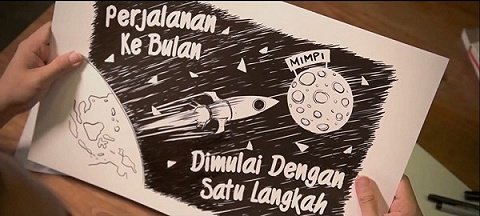 Perjalanan
Ke Bulan
MIMPI
Dimulai Dengan
Satu Langkah